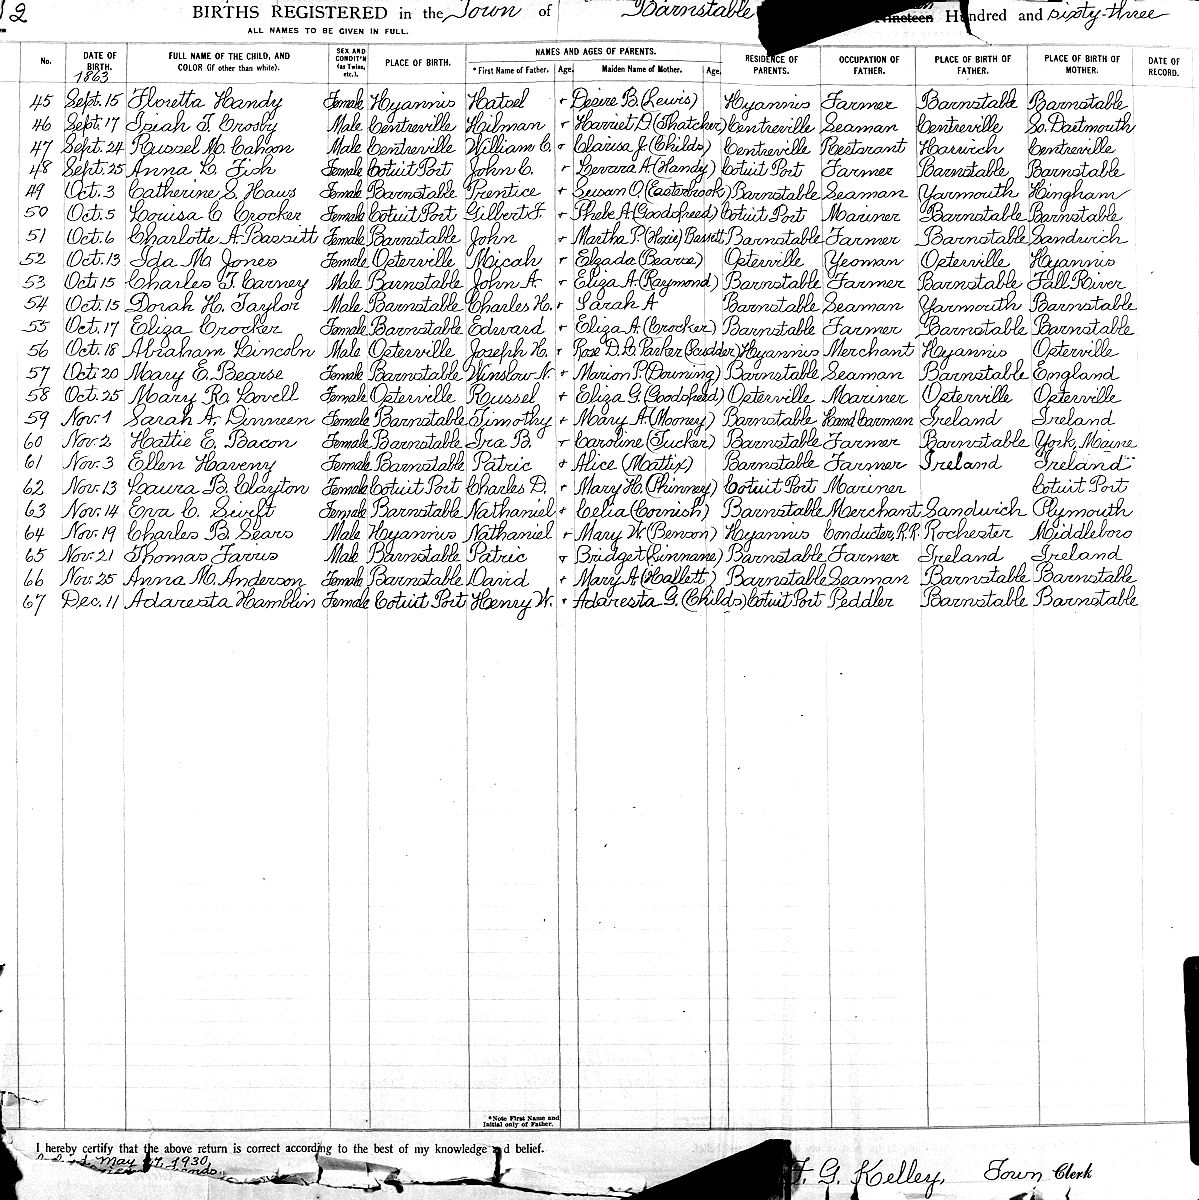 12 BIRTHS REGISTERED in the Town of Barnstable Nineteen Hundred and sixty-three
ALL NAMES TO BE GIVEN IN FULL.
No. DATE OF BIRTH. 1863 FULL NAME OF THE CHILD, AND COLOR (if other than white). SEX AND CONDIT'N (as Twins, etc.). PLACE OF BIRTH. NAMES AND AGES OF PARENTS. *First Name of Father. Age. Maiden Name of Mother. Age. RESIDENCE OF PARENTS. OCCUPATION OF FATHER. PLACE OF BIRTH OF FATHER. PLACE OF BIRTH OF MOTHER. DATE OF RECORD.
45 Sept. 15 Floretta Handy Female Hyannis Hatsel + Desire B. (Lewis) Hyannis Farmer Barnstable Barnstable
46 Sept. 17 Isiah T. Crosby Male Centreville Hilman + Harriet D. (Thatcher) Centreville Seaman Centreville So. Dartmouth
47 Sept. 24 Russel M. Cahoon Male Centreville William C. + Clarisa J. (Childs) Centreville Resterant Harwich Centreville
48 Sept. 25 Anna L. Fish Female Cotuit Port John C. + Levara A. (Handy) Cotuit Port Farmer Barnstable Barnstable
49 Oct. 3 Catherine S. Haws Female Barnstable Prentice + Susan O. (Easterbrook) Barnstable Seaman Yarmouth Hingham
50 Oct. 5 Louisa C Crocker Female Cotuit Port Gilbert F. + Phebe A (Goodspeed) Cotuit Port Mariner Barnstable Barnstable
51 Oct. 6 Charlotte A. Bassitt Female Barnstable John + Martha P. (Hoxie) Bassett Barnstable Farmer Barnstable Sandwich
52 Oct. 13 Ida M. Jones Female Osterville Micah + Elzada (Bearse) Osterville Yeoman Osterville Hyannis
53 Oct. 15 Charles T. Carney Male Barnstable John A. + Eliza A. (Raymond) Barnstable Farmer Barnstable Fall River
54 Oct. 15 Dorah H. Taylor Male Barnstable Charles H. + Sarah A Barnstable Seaman Yarmouth Barnstable
55 Oct. 17 Eliza Crocker Female Barnstable Edward + Eliza A (Crocker) Barnstable Farmer Barnstable Barnstable
56 Oct. 18 Abraham Lincoln Male Osterville Joseph H. + Rose D. L. Parker (Scudder) Hyannis Merchant Hyannis Osterville
57 Oct. 20 Mary E. Bearse Female Barnstable Winslow N. + Marion P. (Downing) Barnstable Seaman Barnstable England
58 Oct. 25 Mary R. Lovell Female Osterville Russel + Eliza G. (Goodspeed) Osterville Mariner Osterville Osterville
59 Nov. 1 Sarah A. Dinneen Female Barnstable Timothy + Mary A. (Mooney) Barnstable Hand Carman Ireland Ireland
60 Nov. 2 Hattie E. Bacon Female Barnstable Ira B. + Caroline (Tucker) Barnstable Farmer Barnstable York, Maine
61 Nov. 3 Ellen Haveny Female Barnstable Patric + Alice (Mattix) Barnstable Farmer Ireland Ireland
62 Nov. 13 Laura B. Clayton Female Cotuit Port Charles D. + Mary H. (Phinney) Cotuit Port Mariner Cotuit Port
63 Nov. 14 Eva C. Swift Female Barnstable Nathaniel + Celia (Cornish) Barnstable Merchant Sandwich Plymouth
64 Nov. 19 Charles B. Sears Male Hyannis Nathaniel + Mary W. (Benson) Hyannis Conductor, R.R. Rochester Middleboro
65 Nov. 21 Thomas Farris Male Barnstable Patric + Bridget (Linnane) Barnstable Farmer Ireland Ireland
66 Nov. 25 Anna M. Anderson Female Barnstable David + Mary A. (Hallett) Barnstable Seaman Barnstable Barnstable
67 Dec. 11 Adaresta Hamblin Female Cotuit Port Henry W. + Adaresta G. (Childs) Cotuit Port Peddler Barnstable Barnstable
*Note First Name and
Initial only of Father.
I hereby certify that the above return is correct according to the best of my knowledge and belief.
May 27, 1930
F. G. Kelley, Town Clerk